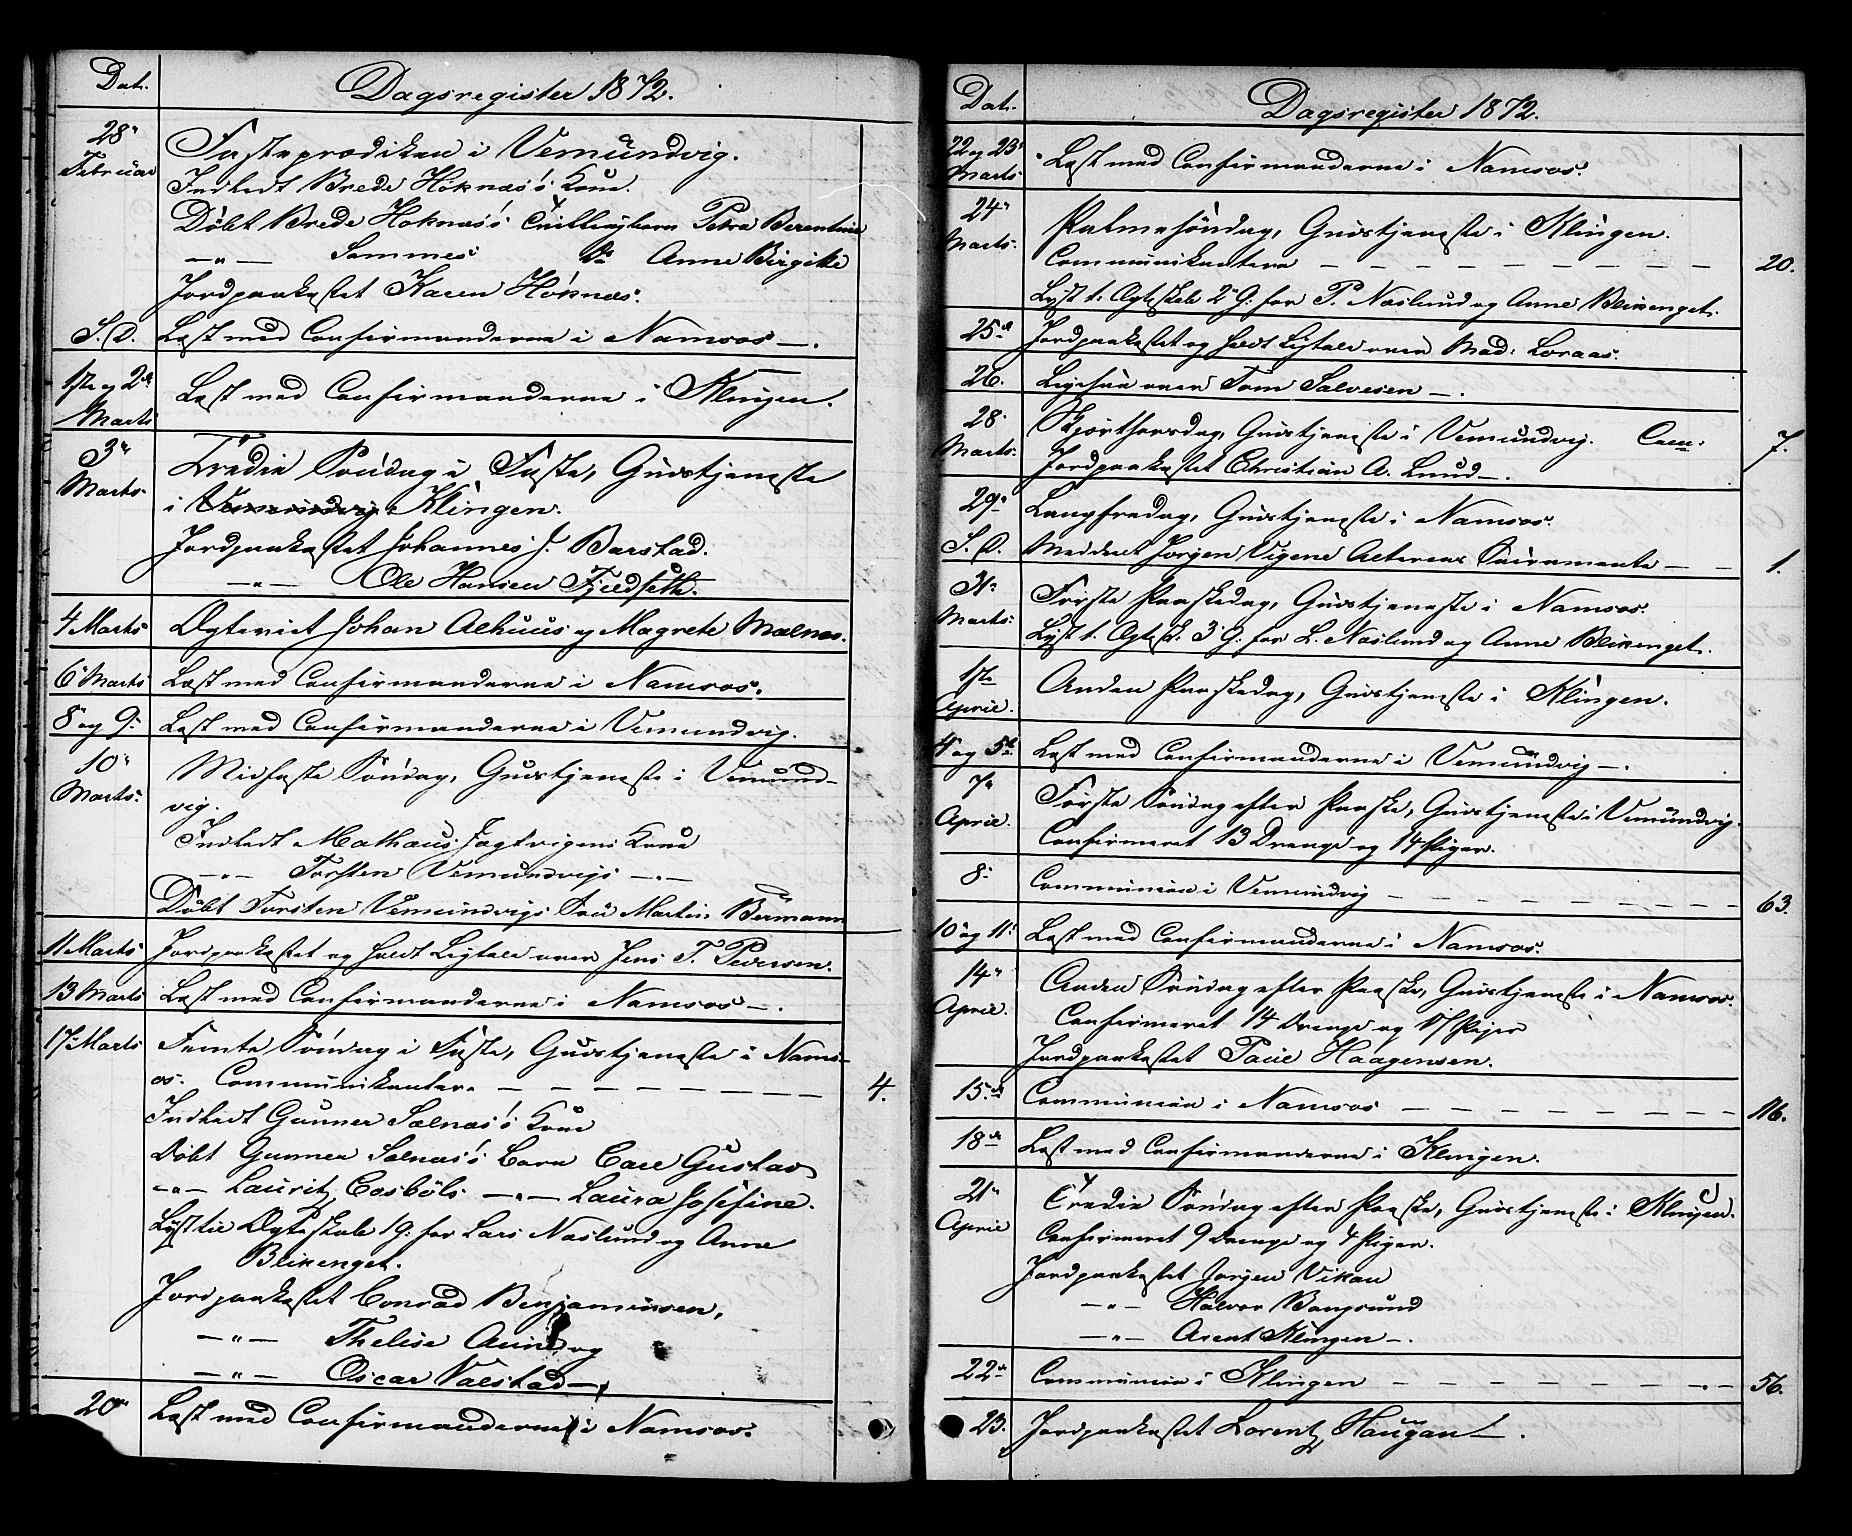 Dat.
Dagsregister 1872.
28"
Februar
Fasteprædiken i Vemundvig.
Indledt Brede Höknæs's Kone.
Döbt Brede Höknæs's Tvillingbarn Petra Berentine
—"— Sammes do Anne Birgitte
Jordpaakastet Karen Höknæs.
S. D. Læst med Confirmanderne i Namsos —.
1ste og 2den
Marts
Læst med Confirmanderne i Klingen.
3"
Marts.
Tredie Söndag i Faste, Gudstjeneste
i Vemundvig Klingen.
Jordpaakastet Johannes J. Barstad.
—"— Ole Hansen Fjeldseth.
4 Marts Ægteviet Johan Aehuus og Magrete Mælnæs.
6" Marts Læst med Confirmanderne i Namsos.
8 og 9: Læst med Confirmanderne i Vemundvig.
10"
Marts:
Midfaste Söndag, Gudstjeneste i Vemund-
vig.
Indledt Mathæus Jagtvigens Kone
—"— Torsten Vemundvigs —"—
Döbt Torsten Vemundvigs Sön Martin Bermann
11 Marts Jordpaakastet og holdt Ligtale over Jens T. Pedersen.
13 Marts Læst med Confirmanderne i Namsos —.
17 Marts Femte Söndag i Faste, Gudstjeneste i Nams-
os. Communikantere — — — — — — — 4.
Indledt Gunner Sælnæs's Kone
Döbt Gunner Sælnæs's Barn Carl Gustav
—"— Lauritz Casböls —"— Laura Josefine.
Lyst til Ægteskab 1 G: for Lars Næslund og Anne
Bleikenget.
Jordpaakastet Conrad Benjaminsen,
—"— Thelise Aune og
—"— Oscar Valstad —.
20de Læst med Confirmanderne i Namsos.
Dat.
Dagsregister 1872.
22 og 23"
Marts
Læst med Confirmanderne i Namsos.
24"
Marts.
Palmesöndag, Gudstjeneste i Klingen.
Communikantere — — — — — — — 20.
Lyst t. Ægteskab 2 G: for P. Næslund og Anne Bleikenget.
25de Jordpaakastet og holdt Ligtale over Mad: Loraas.
26. Ligtale over Tom Salvesen —.
28
Marts.
Skjærthorsdag, Gudstjeneste i Vemundvig. Com: 7.
Jordpaakastet Christian A. Lund —.
29" Langfredag, Gudstjeneste i Namsos.
S. D. Meddelt Jörgen Vigene Alterens Sacramente — — 1.
31"
Marts.
Förste Paaskedag, Gudstjeneste i Namsos.
Lyst t. Ægtesk. 3 G: for L. Næslund og Anne Bleikenget.
1ste
April.
Anden Paaskedag, Gudstjeneste i Klingen.
4 og 5te Læst med Confirmanderne i Vemundvig —.
7"
April.
Förste Söndag efter Paaske, Gudstjeneste i Vemundvig.
Confirmeret 13 Drenge og 14 Piger.
8: Communion i Vemundvig — — — — — — — 63.
10 og 11: Læst med Confirmanderne i Namsos.
14"
April.
Anden Söndag efter Paaske, Gudstjeneste i Namsos.
Confirmeret 14 Drenge og 17 Piger
Jordpaakastet Paul Haagensen.
15de Communion i Namsos — — — — — — — 116.
18de Læst med Confirmanderne i Klingen.
21"
April
Tredie Söndag efter Paaske, Gudstjeneste i Klingen.
Confirmeret 9 Drenge og 4 Piger.
Jordpaakastet Jörgen Vikan
—"— Halvor Bangsund
—"— Arent Klingen —.
22de Communion i Klingen — — — — — — — 56.
23. Jordpaakastet Lorentz Haugan —.